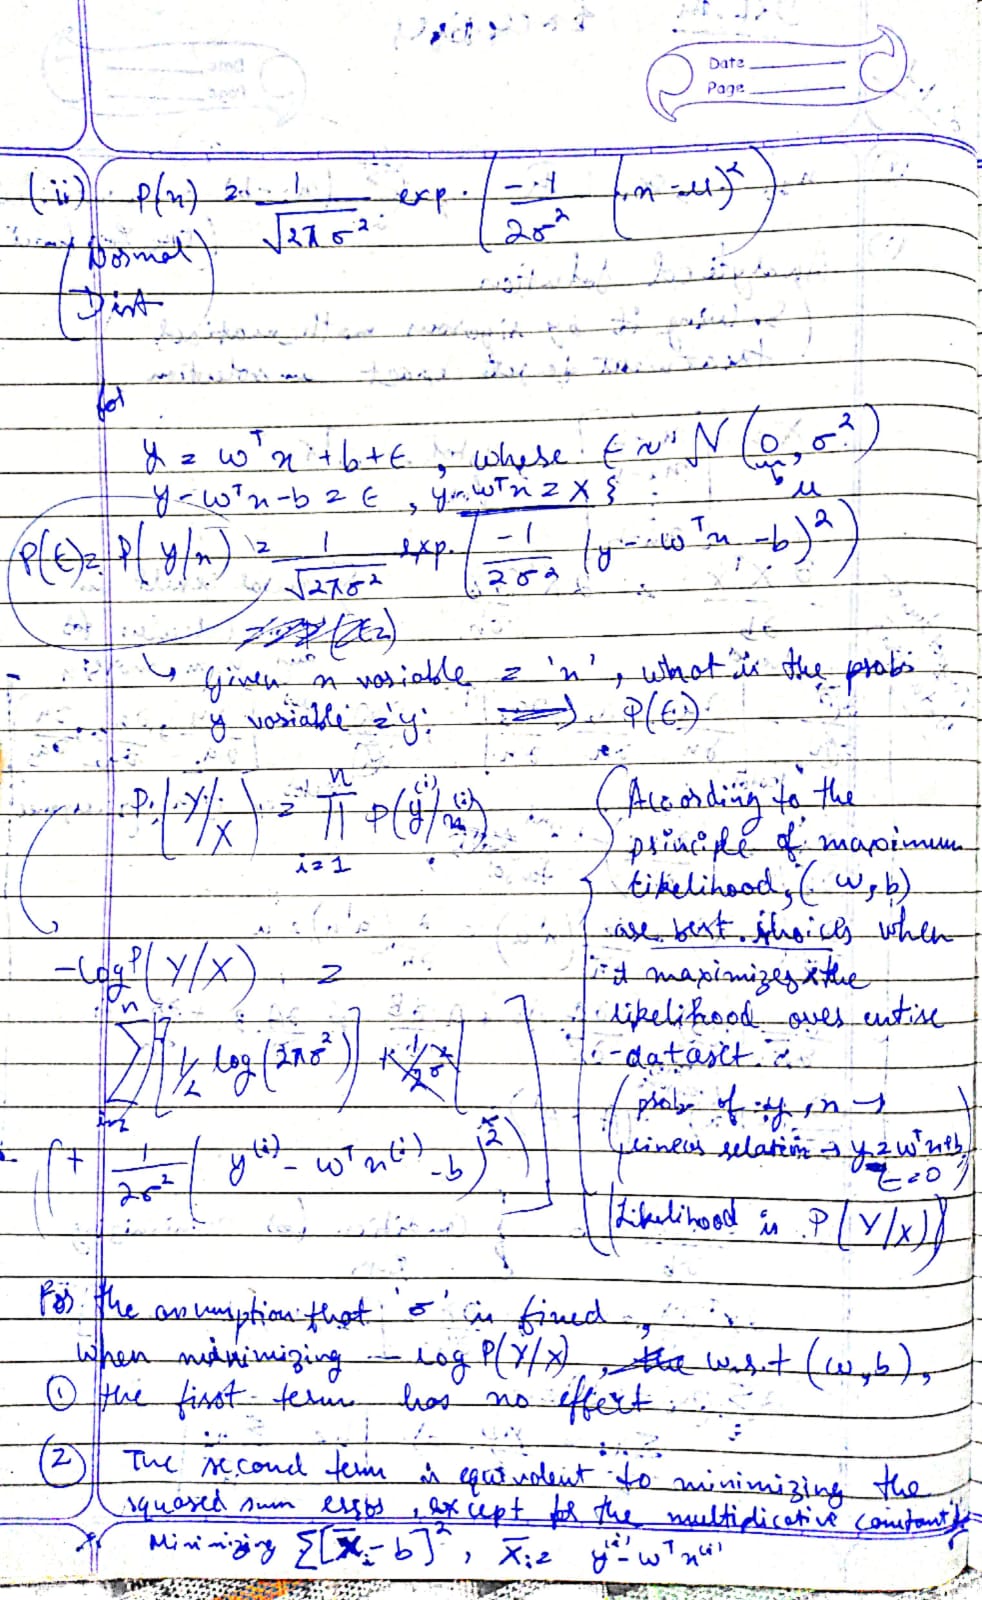 Date
Page
(ii) P(x) = 1/√(2πσ²) exp. (-1/2σ² (x-μ)²)
(Normal
Dist)
for
y = wᵀx + b + ϵ, where ϵ ~ N(0, σ²)
y - wᵀx - b = ϵ, y - wᵀx = X } μ
P(ϵ) = P(y/x) = 1/√(2πσ²) exp. (-1/2σ² (y - wᵀx - b)²)
↳ given x variable = 'x', what is the prob:
y variable = y. ⟹ P(ϵ)
P(Y/X) = ∏ᵢ₌₁ⁿ P(y⁽ⁱ⁾/x⁽ⁱ⁾)
-log P(Y/X) =
∑ᵢ₌₁ⁿ [[1/2 log(2πσ²)]
(+ 1/2σ² (y⁽ⁱ⁾ - wᵀx⁽ⁱ⁾ - b)²)]
{ According to the
principle of maximum
likelihood, (w, b)
are best choices when
it maximizes the
likelihood over entire
dataset.
(prob of y, x →
linear relation → y = wᵀx+b,
ϵ=0)
(Likelihood is P(Y/X))
For the assumption that 'σ' is fixed,
when minimizing - log P(Y/X), w.r.t (w, b),
① the first term has no effect.
② The second term is equivalent to minimizing the
squared sum error, except for the multiplicative constant
Minimizing ∑[X̄ᵢ - b]², X̄ᵢ = y⁽ⁱ⁾ - wᵀx⁽ⁱ⁾